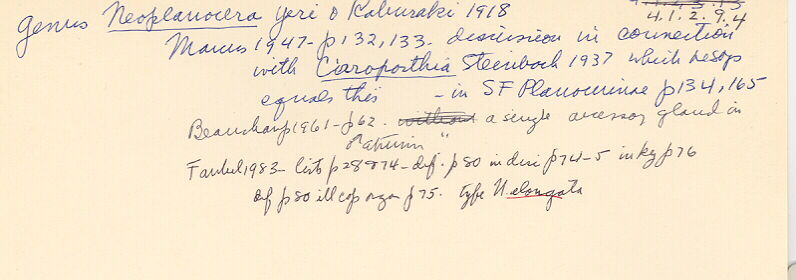 1.1.4.3.13
4.1.2.9.4
Genus Neoplanocera Yeri & Kaburaki 1918
Marcus 1947- p132,133- discussion in connection
with Cirroposthia Steinbock 1937 which he says
equals this - in SF Planocerinae p134,165
Beauchamp 1961- p62. without a single accessory gland in
"atrium"
Faubel 1983- lists p28&74- def. p80 in disc p74-5 in key p76
def p80 ill cop organ p75. type N. elongata